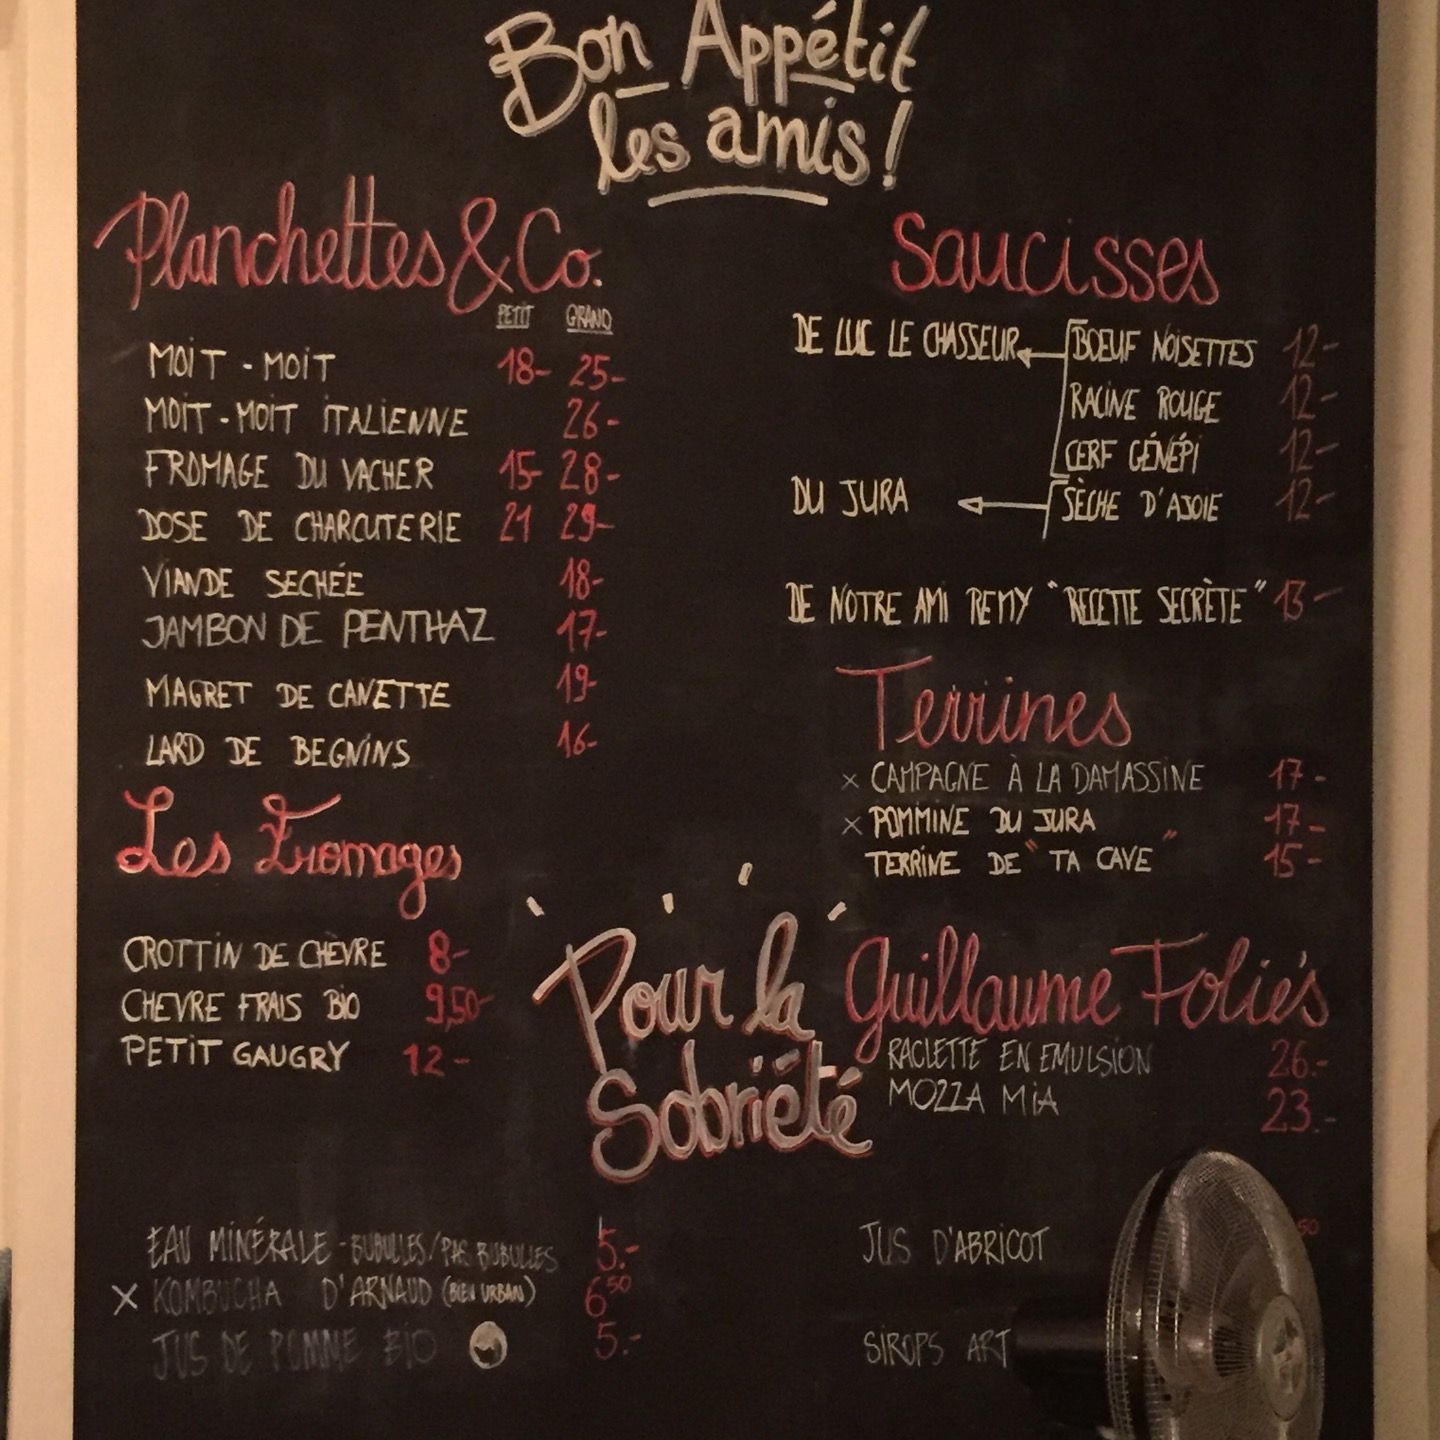 Bon Appétit
les amis!
Planchettes & Co.
PETIT GRAND
MOIT - MOIT 18- 25-
MOIT - MOIT ITALIENNE 26-
FROMAGE DU VACHER 15- 28-
DOSE DE CHARCUTERIE 21 29-
VIANDE SECHÉE 18-
JAMBON DE PENTHAZ 17-
MAGRET DE CANETTE 19-
LARD DE BEGNINS 16-
Les Fromages
CROTTIN DE CHÈVRE 8-
CHEVRE FRAIS BIO 9,50-
PETIT GAUGRY 12-
Saucisses
DE LUC LE CHASSEUR BOEUF NOISETTES 12-
RACINE ROUGE 12-
CERF GÉNÉPI 12-
DU JURA SÈCHE D'AJOIE 12-
DE NOTRE AMI REMY "RECETTE SECRÈTE" 13-
Terrines
x CAMPAGNE À LA DAMASSINE 17-
x POMMINE DU JURA 17-
TERRINE DE "TA CAVE" 15-
Guillaume Folie's
RACLETTE EN EMULSION 26.-
MOZZA MIA 23.-
Pour la
Sobriété
EAU MINÉRALE - BUBULLES/PAS BUBULLES 5.-
x KOMBUCHA D'ARNAUD (BIEN URBAN) 6 50
JUS DE POMME BIO 5.-
JUS D'ABRICOT 50
SIROPS ART